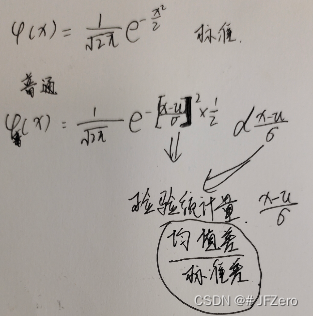 φ(x) = 1/√2π e^-x²/2 标准.
普通
φ(x) = 1/√2π e^-[x-u/σ]²×1/2 d x-u/σ
检验统计量 x-u/σ
均值差
标准差
CSDN @#JFZero